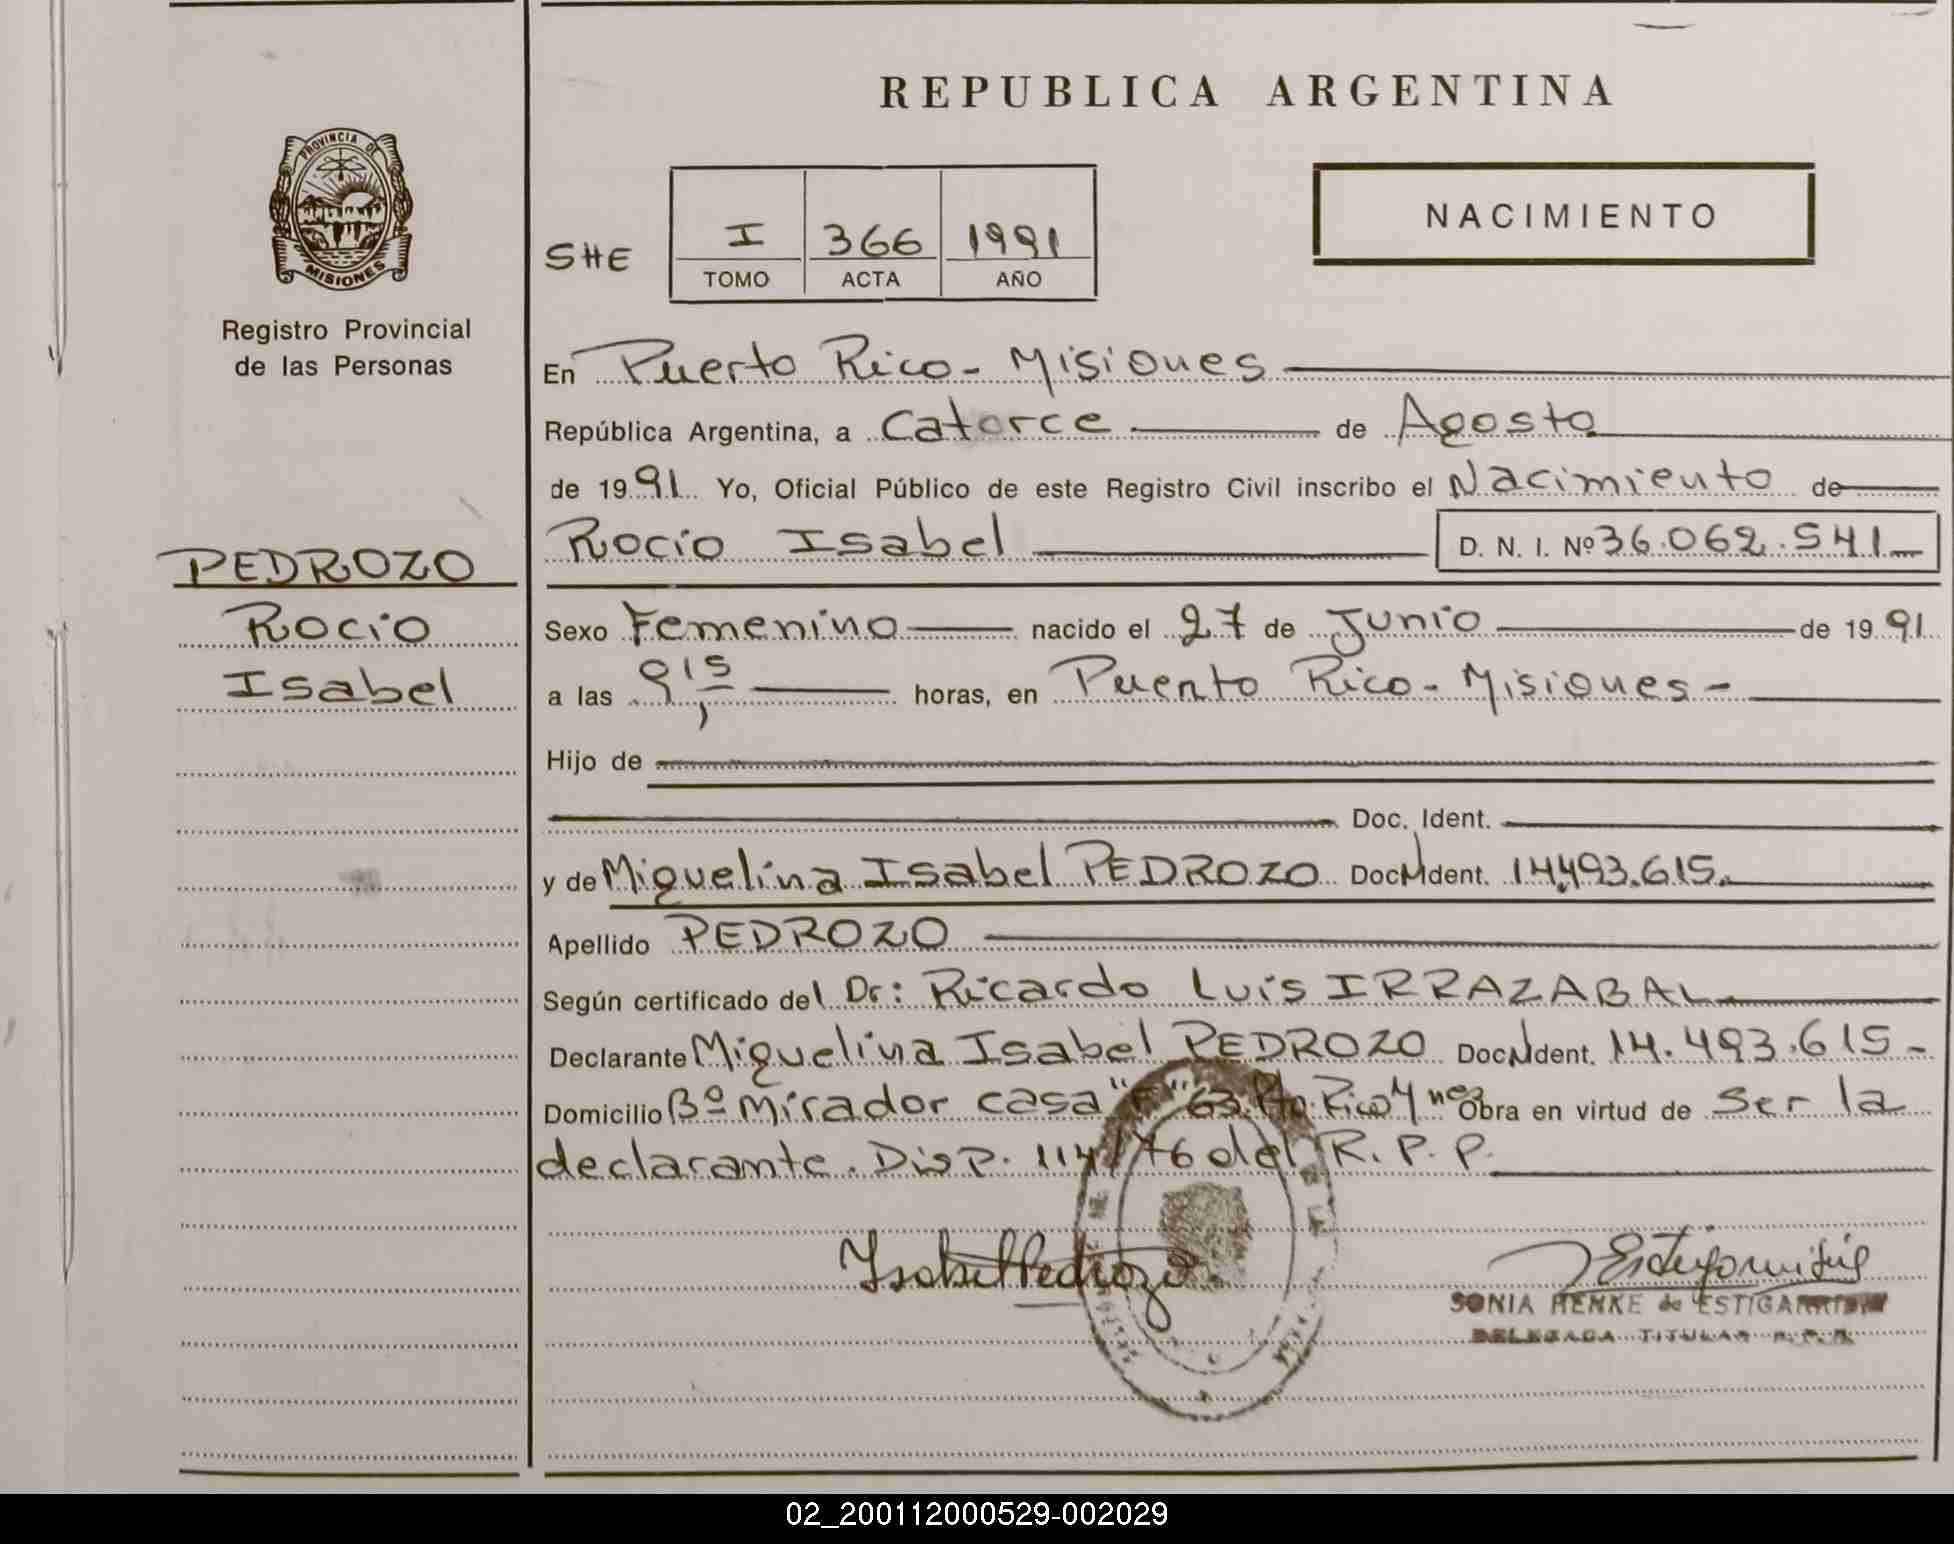 REPUBLICA ARGENTINA
PROVINCIA DE
MISIONES
Registro Provincial
de las Personas
NACIMIENTO
SHE
I 366 1991
TOMO ACTA AÑO
En Puerto Rico - Misiones
República Argentina, a Catorce de Agosto
de 1991 Yo, Oficial Público de este Registro Civil inscribo el Nacimiento de
Rocio Isabel D. N. I. Nº 36.062.541
PEDROZO
Rocio
Isabel
Sexo Femenino nacido el 27 de Junio de 1991
a las 9,15 horas, en Puerto Rico - Misiones -
Hijo de
Doc. Ident.
y de Miguelina Isabel PEDROZO Doc. Ident. 14.493.615.
Apellido PEDROZO
Según certificado del Dr: Ricardo Luis IRRAZABAL
Declarante Miguelina Isabel PEDROZO Doc. Ident. 14.493.615 -
Domicilio Bº Mirador casa 63. Pto. Rico Mnes Obra en virtud de ser la
declarante. Disp. 114/76 del R. P. P.
Isabel Pedrozo
SONIA HENKE de ESTIGARRIBIA
DELEGADA TITULAR R.P.P.
02_200112000529-002029